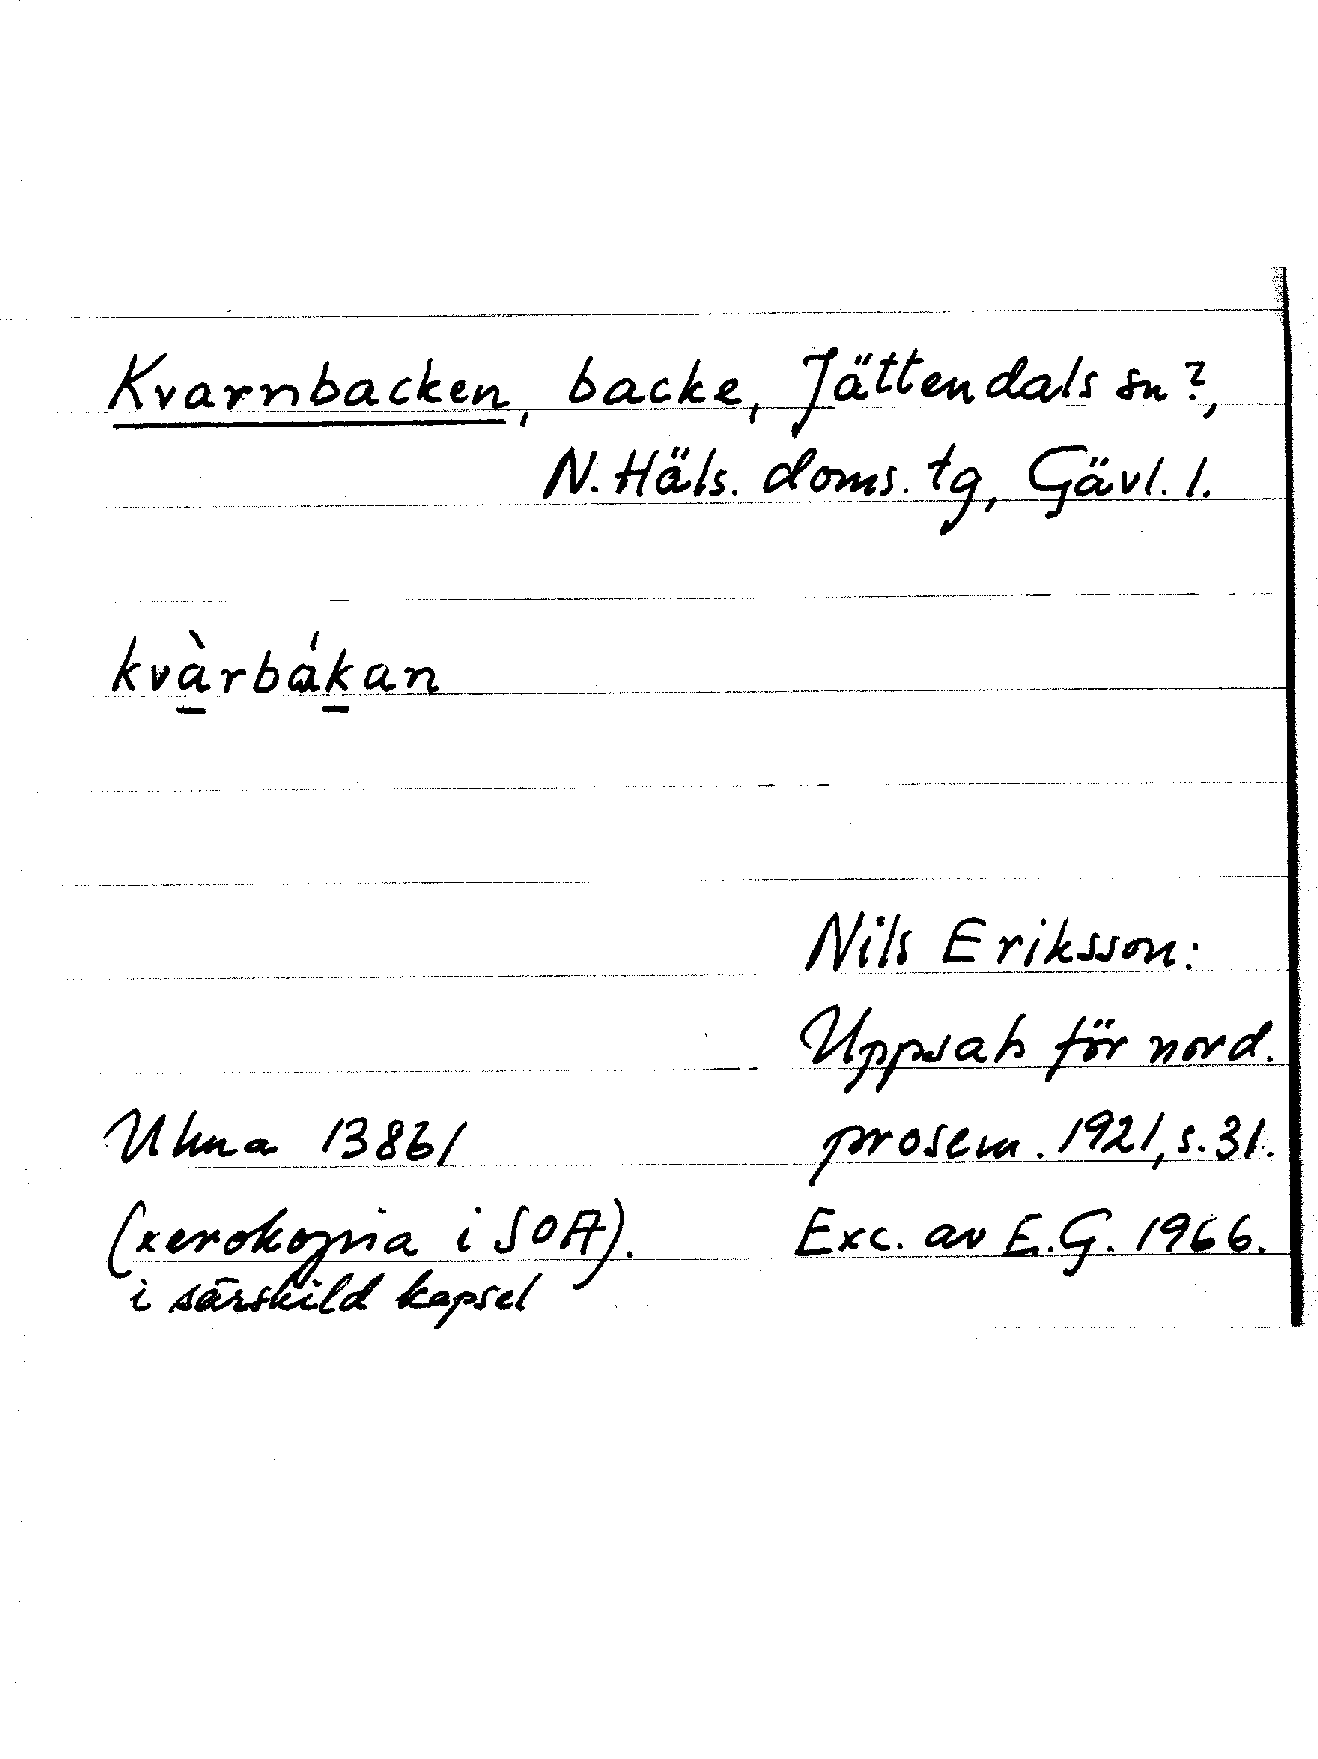 Kvarnbacken, backe, Jättendals sn?,
N. Häls. doms. tg, Gävl. l.
kvàrbákan
Nils Eriksson:
Uppsats för nord.
Ulma 13861 prosem. 1921, s. 31.
(xerokopia i SOA). Exc. av E.G. 1966.
i särskild kapsel